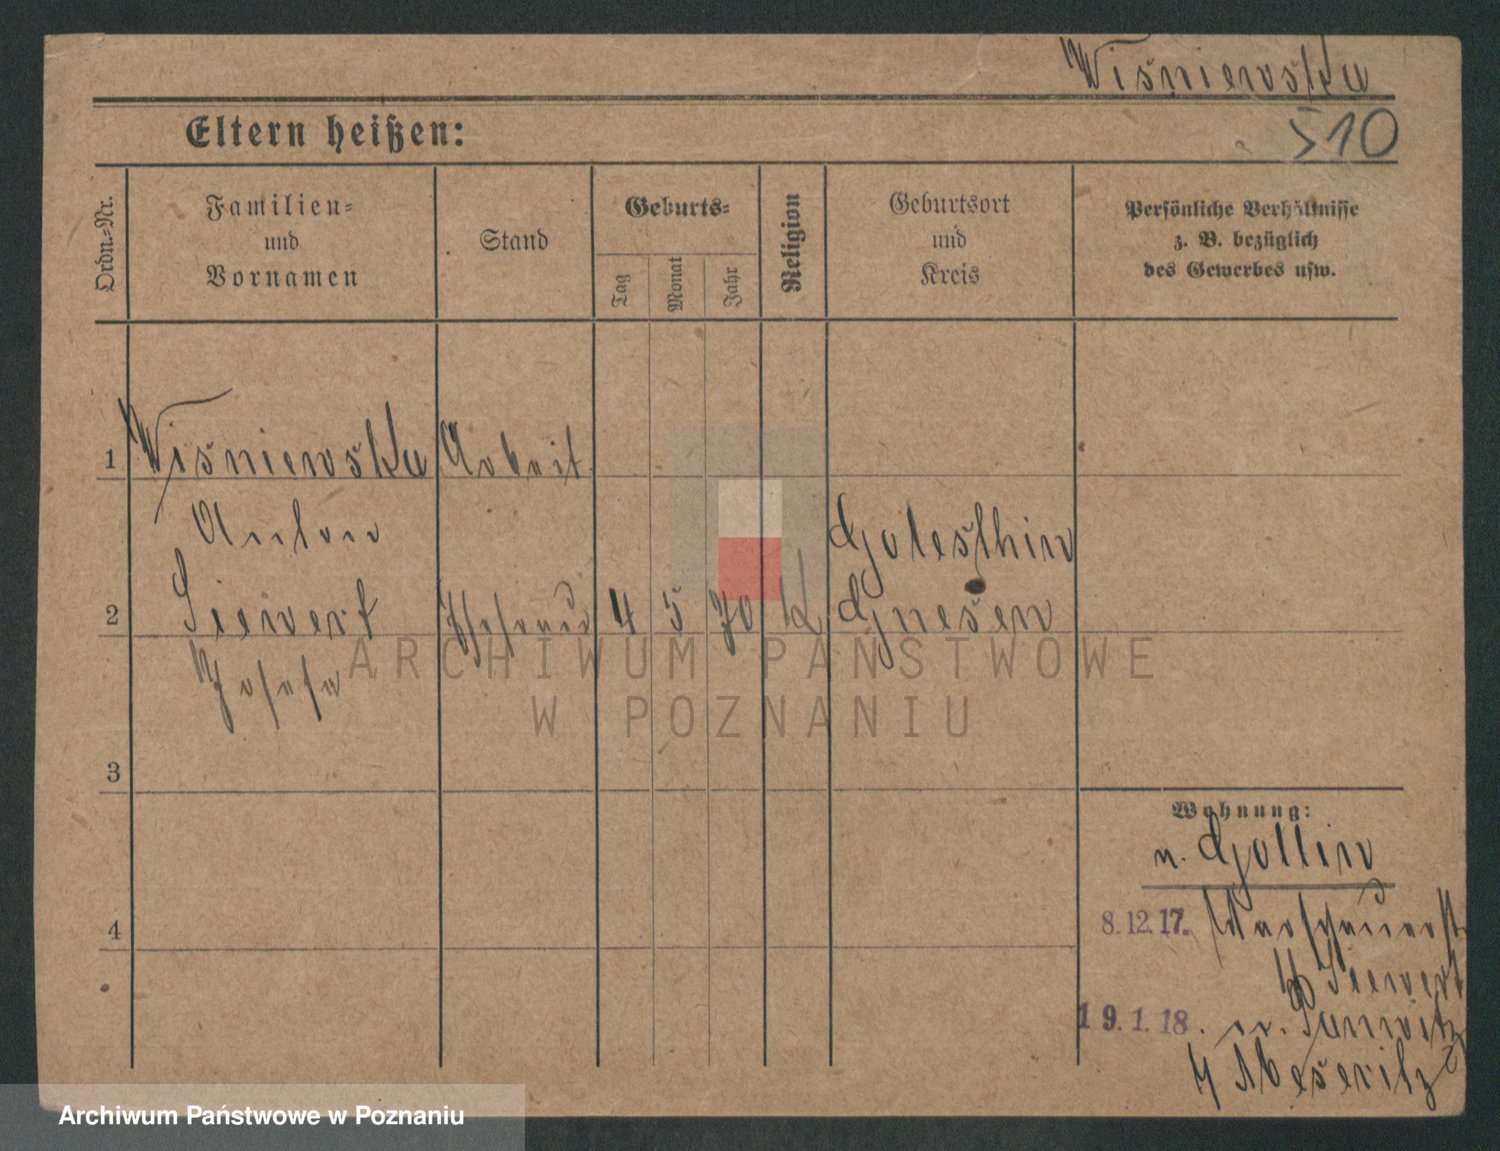 Wiśniewska
510
Eltern heißen:
Ordn.-Nr.
Familien-
und
Vornamen
Stand
Geburts-
Tag
Monat
Jahr
Religion
Geburtsort
und
Kreis
Persönliche Verhältnisse
z. B. bezüglich
des Gewerbes usw.
1 Wiśniewska Arbeit
Anton
2 Sievert Ehefrau 4 5 70 k Gnesen
Josefa
3
4
Wohnung:
n. Gollin
8.12.17. Warschauerst
b/ Sievert
19.1.18. n.
/ Meseritz
ARCHIWUM PAŃSTWOWE
W POZNANIU
Archiwum Państwowe w Poznaniu